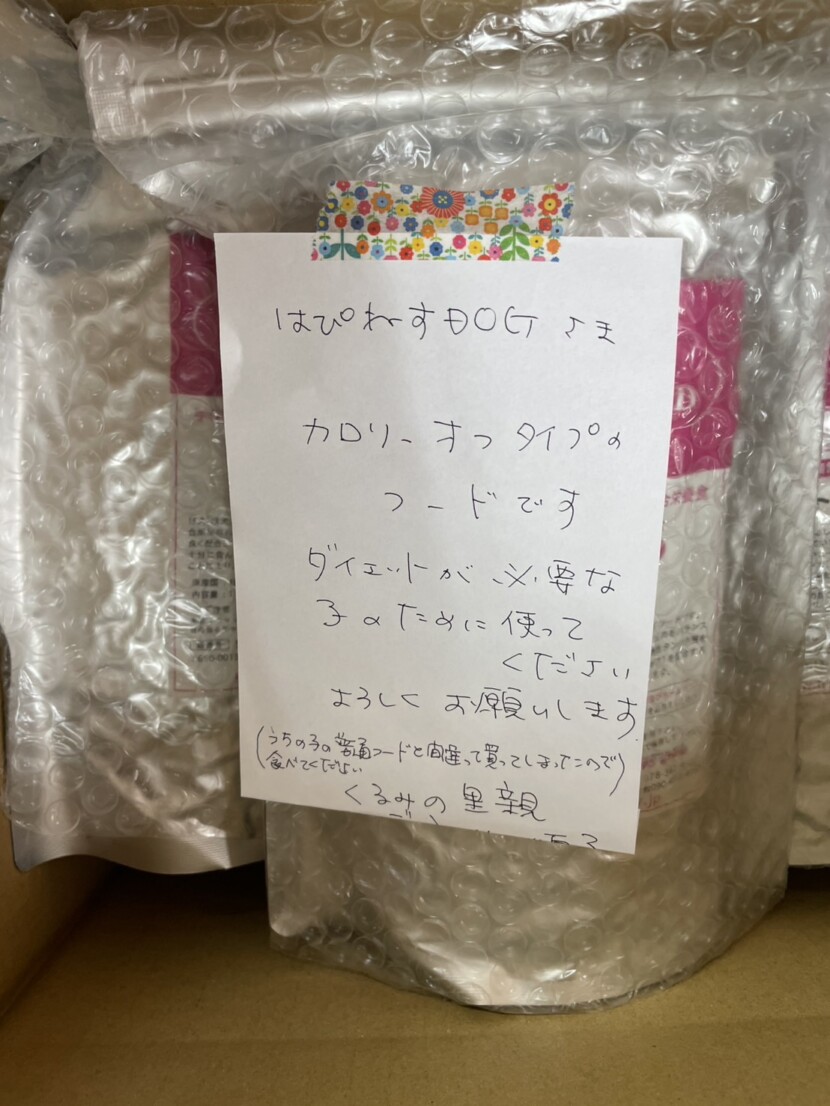 はぴねすDOGさま
カロリーオフタイプの
フードです
ダイエットが必要な
子のために使って
ください
よろしくお願いします
(うちの子の普通フードと間違って買ってしまったので)
食べてください
くるみの里親